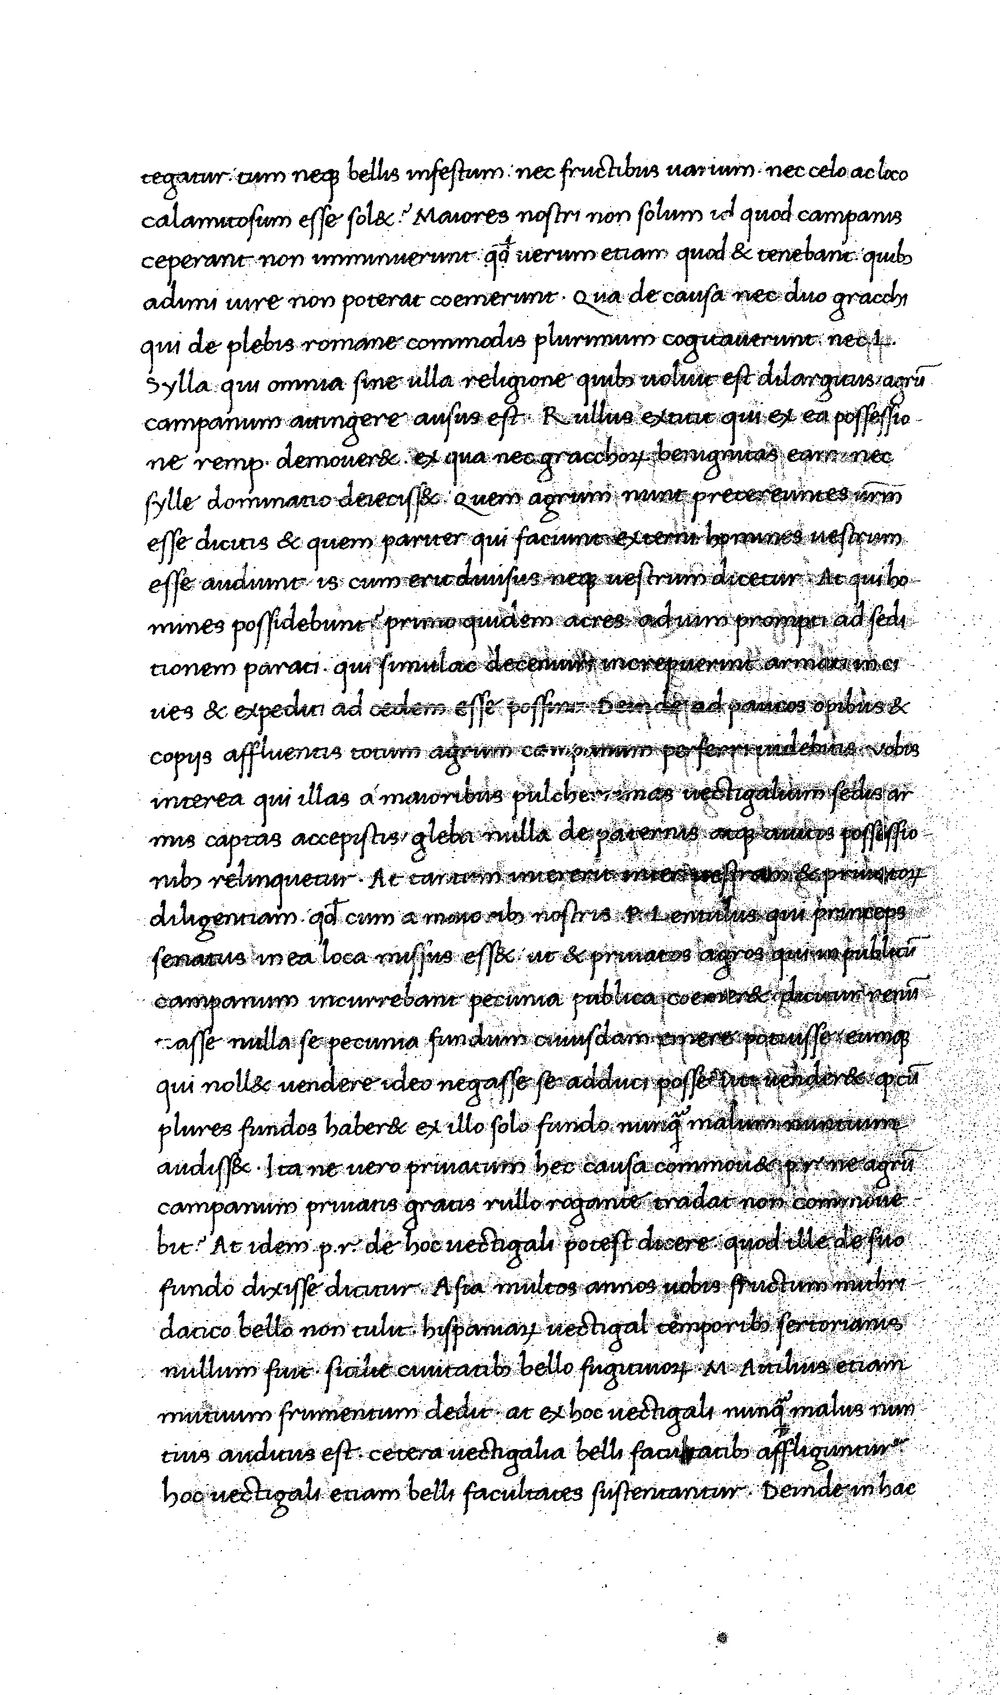 tegatur. tum neq; bellis infestum. nec fructibus uarium. nec celo ac loco
calamitosum esse sol&? Maiores nostri non solum id quod campanis
ceperant non imminuerunt. qđ uerum etiam quod & tenebant. quib;
adimi iure non poterat coemerunt. Qua de causa nec duo gracchi
qui de plebis romane commodis plurimum cogitauerunt. nec .L.
Sylla qui omnia sine ulla religione quib; uoluit est dilargitus. agrū
campanum attingere ausus est. Rullus extitit qui ex ea possessio
ne remp. demouer&. ex qua nec gracchoꝝ benignitas eam. nec
sylle dominatio deieciss&. Quem agrum nunc pretereuntes ūrm̄
esse dicitis & quem pariter qui faciunt externi homines uestrum
esse audiunt. is cum erit diuisus neq; uestrum dicetur. At qui ho
mines possidebunt? primo quidem acres. ad uim prompti ad sedi
tionem parati. qui simulac decemuiri increpuerint armati in ci
ues & expediti ad cedem esse possint. Deinde ad paucos opibus &
copijs affluentis totum agrum campanum perferri uidebitis. Vobis
interea qui illas a maioribus pulcherrimas uectigalium sedis ar
mis captas accepistis, gleba nulla de paternis atq; auitis possessio
nib; relinquetur. At tantum intererit inter uestram & priuatoꝝ
diligentiam. qđ cum a maiorib; nostris .P. Lentulus qui princeps
senatus in ea loca missus ess&. ut & priuatos agros qui in publicū
campanum incurrebant pecunia publica coemer&. dicitur renū
tiasse nulla se pecunia fundum cuiusdam emere potuisse. eumq;
qui noll& uendere ideo negasse se adduci posse uti uender&. qꝫ cū
plures fundos haber& ex illo solo fundo nunq̄ malum nuntium
audiss&. Ita ne uero priuatum hec causa commou& p.r. ne agrū
campanum priuatis gratis rullo rogante tradat non commoue
bit? At idem p.r. de hoc uectigali potest dicere. quod ille de suo
fundo dixisse dicitur. Asia multos annos uobis fructum mithri
datico bello non tulit. hispaniaꝝ uectigal temporib; sertorianis
nullum fuit. sicilie ciuitatib; bello fugitiuoꝝ .M. Atilius etiam
mutuum frumentum dedit. at ex hoc uectigali nunq̄ malus nun
tius auditus est. cetera uectigalia belli facultatib; affliguntur
hoc uectigali etiam belli facultates sustentantur. Deinde in hac